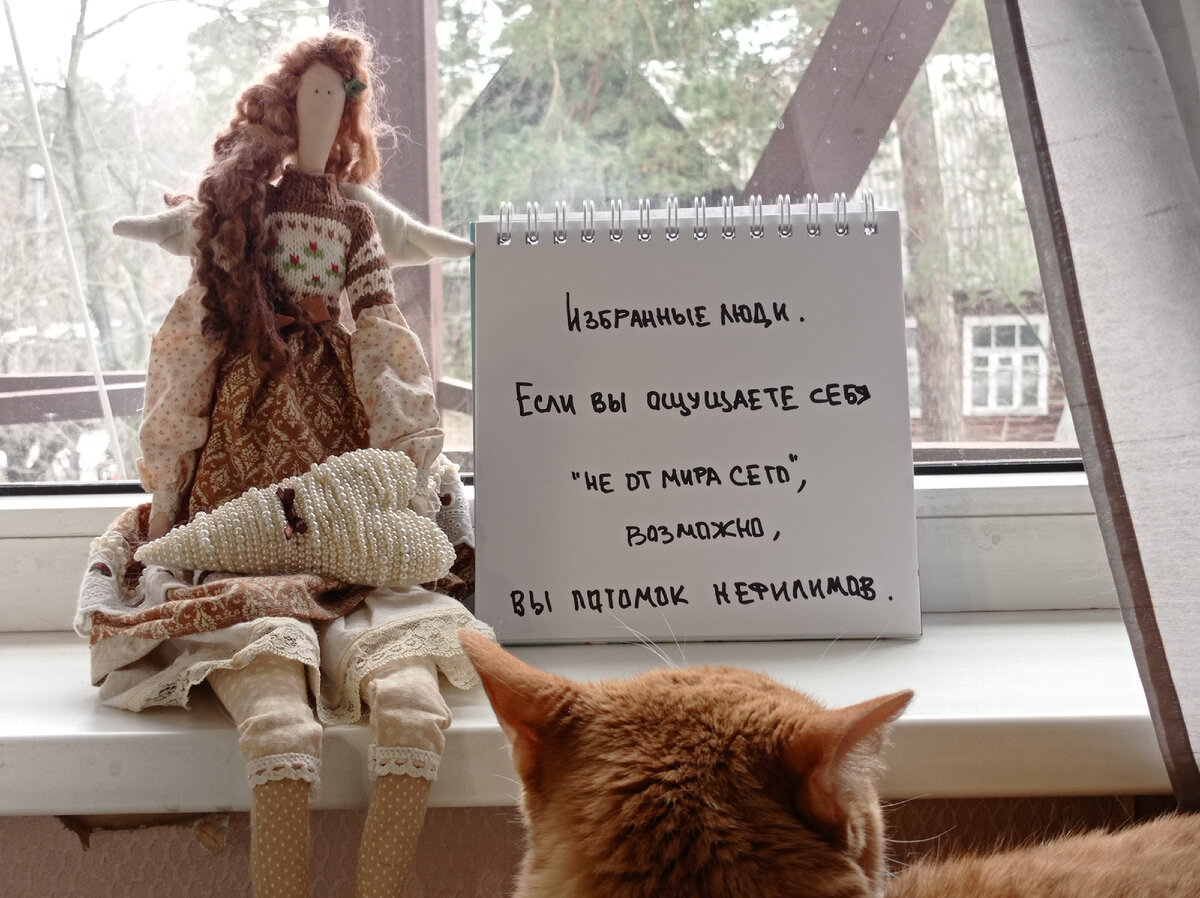 Избранные люди.
Если вы ощущаете себя
"не от мира сего",
возможно,
вы потомок нефилимов.